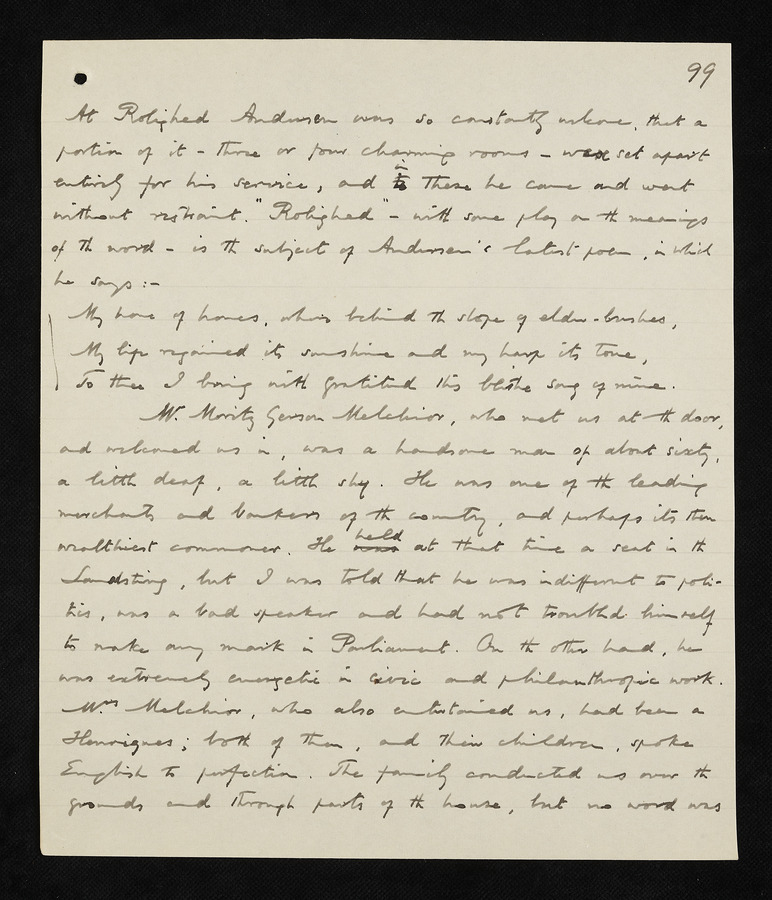 99
At Rolighed Andersen was so constantly welcome, that a
portion of it - three or four charming rooms - were set apart
entirely for his service, and to in these he came and went
without restraint. "Rolighed" - with some play on the meanings
of the word - is the subject of Andersen's latest poem, in which
he says :-
My home of homes, where behind the slope of elder-bushes,
My life regained its sunshine and my harp its tone,
To thee I bring with gratitud this blithe song of mine.
Mr. Moritz Gerson Melchior, who met us at the door,
and welcomed us in, was a handsome man of about sixty,
a little deaf, a little shy. He was one of the leading
merchants and bankers of the country, and perhaps its then
wealthiest commoner. He was held at that time a seat in the
Landsting, but I was told that he was indifferent to poli-
tics, was a bad speaker and had not troubled himself
to make any mark in Parliament. On the other hand, he
was extremely energetic in civic and philanthropic work.
Mrs Melchior, who also entertained us, had been a
Henriques; both of them, and their children, spoke
English to perfection. The family conducted us over the
grounds and through parts of the house, but no word was